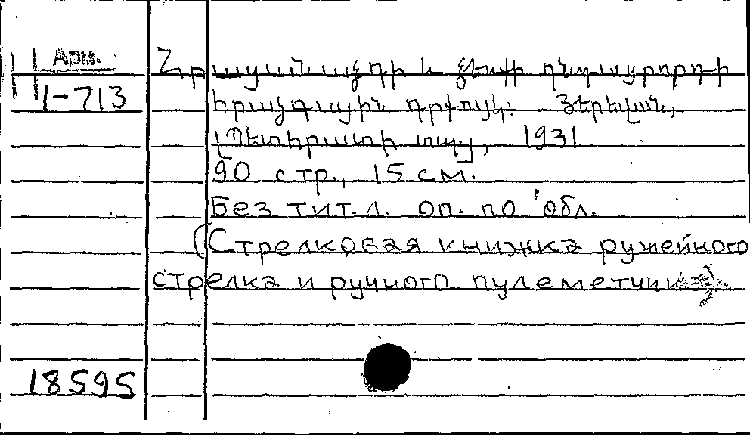 Арм.
1-713
Հրացանաձգի և ձեռքի գնդացրորդի
հրաձգային գրքույկ: Յերևան,
[Պետհրատի տպ], 1931
90 стр., 15 см.
Без тит. л. оп. по обл.
(Стрелковая книжка ружейного
стрелка и ручного пулеметчика)
18595